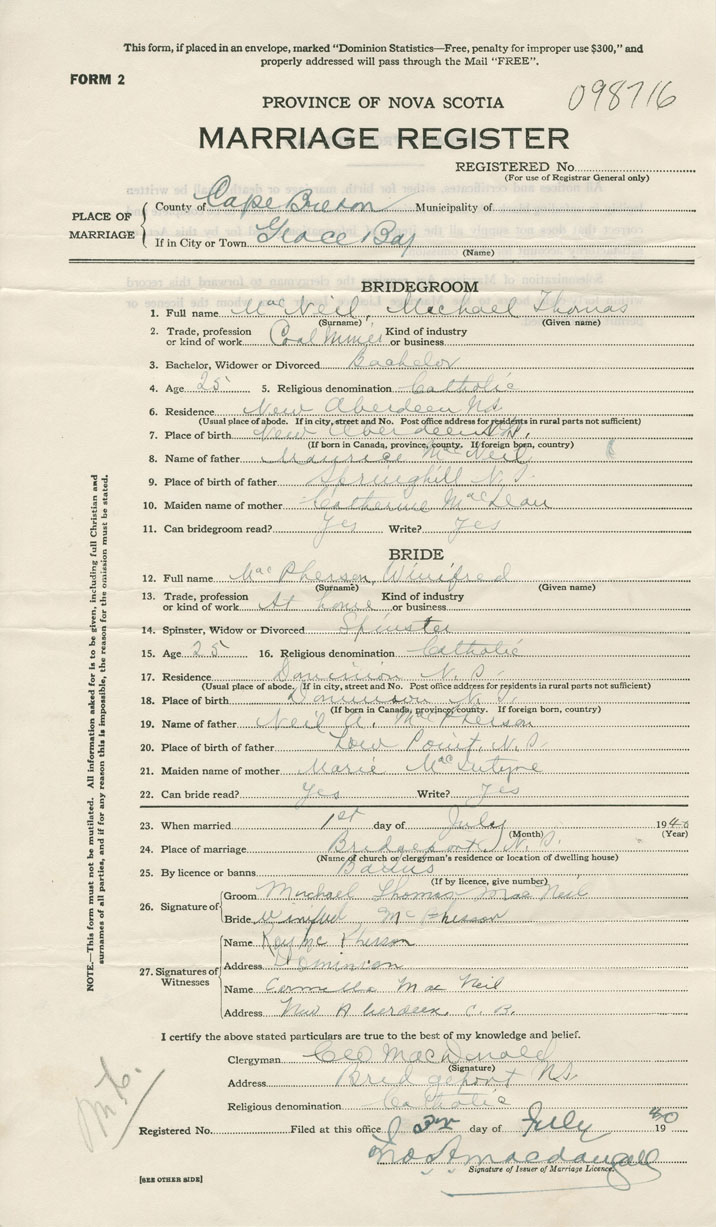 This form, if placed in an envelope, marked "Dominion Statistics—Free, penalty for improper use $300," and
properly addressed will pass through the Mail "FREE".
FORM 2
098716
PROVINCE OF NOVA SCOTIA
MARRIAGE REGISTER
REGISTERED No.
(For use of Registrar General only)
PLACE OF MARRIAGE
County of Cape Breton Municipality of
If in City or Town Glace Bay
(Name)
BRIDEGROOM
1. Full name MacNeil, Michael Thomas
(Surname) (Given name)
2. Trade, profession or kind of work Coal Miner Kind of industry or business
3. Bachelor, Widower or Divorced Bachelor
4. Age 25 5. Religious denomination Catholic
6. Residence New Aberdeen N.S.
(Usual place of abode. If in city, street and No. Post office address for residents in rural parts not sufficient)
7. Place of birth New Aberdeen N.S.
(If born in Canada, province, county. If foreign born, country)
8. Name of father McNeil
9. Place of birth of father Springhill N.S.
10. Maiden name of mother Catherine MacLean
11. Can bridegroom read? Yes Write? Yes
BRIDE
12. Full name MacPherson, Winifred
(Surname) (Given name)
13. Trade, profession or kind of work At home Kind of industry or business
14. Spinster, Widow or Divorced Spinster
15. Age 25 16. Religious denomination Catholic
17. Residence Dominion N.S.
(Usual place of abode. If in city, street and No. Post office address for residents in rural parts not sufficient)
18. Place of birth Dominion N.S.
(If born in Canada, province, county. If foreign born, country)
19. Name of father Neil A. McPherson
20. Place of birth of father Low Point, N.S.
21. Maiden name of mother Marie MacIntyre
22. Can bride read? Yes Write? Yes
23. When married 1st day of July 1940
(Month) (Year)
24. Place of marriage Bridgeport, N.S.
(Name of church or clergyman's residence or location of dwelling house)
25. By licence or banns Banns
(If by licence, give number)
26. Signature of
Groom Michael Thomas Mac Neil
Bride Winifred McPherson
27. Signatures of Witnesses
Name Ray McPherson
Address Dominion
Name Carmella Mac Neil
Address New Aberdeen, C.B.
I certify the above stated particulars are true to the best of my knowledge and belief.
Clergyman MacDonald
(Signature)
Address Bridgeport N.S.
Religious denomination Catholic
Registered No. Filed at this office day of July 1940
Macdougall
Signature of Issuer of Marriage Licence.
[SEE OTHER SIDE]
NOTE.—This form must not be mutilated. All information asked for is to be given, including full Christian and
surnames of all parties, and if for any reason this is impossible, the reason for the omission must be stated.